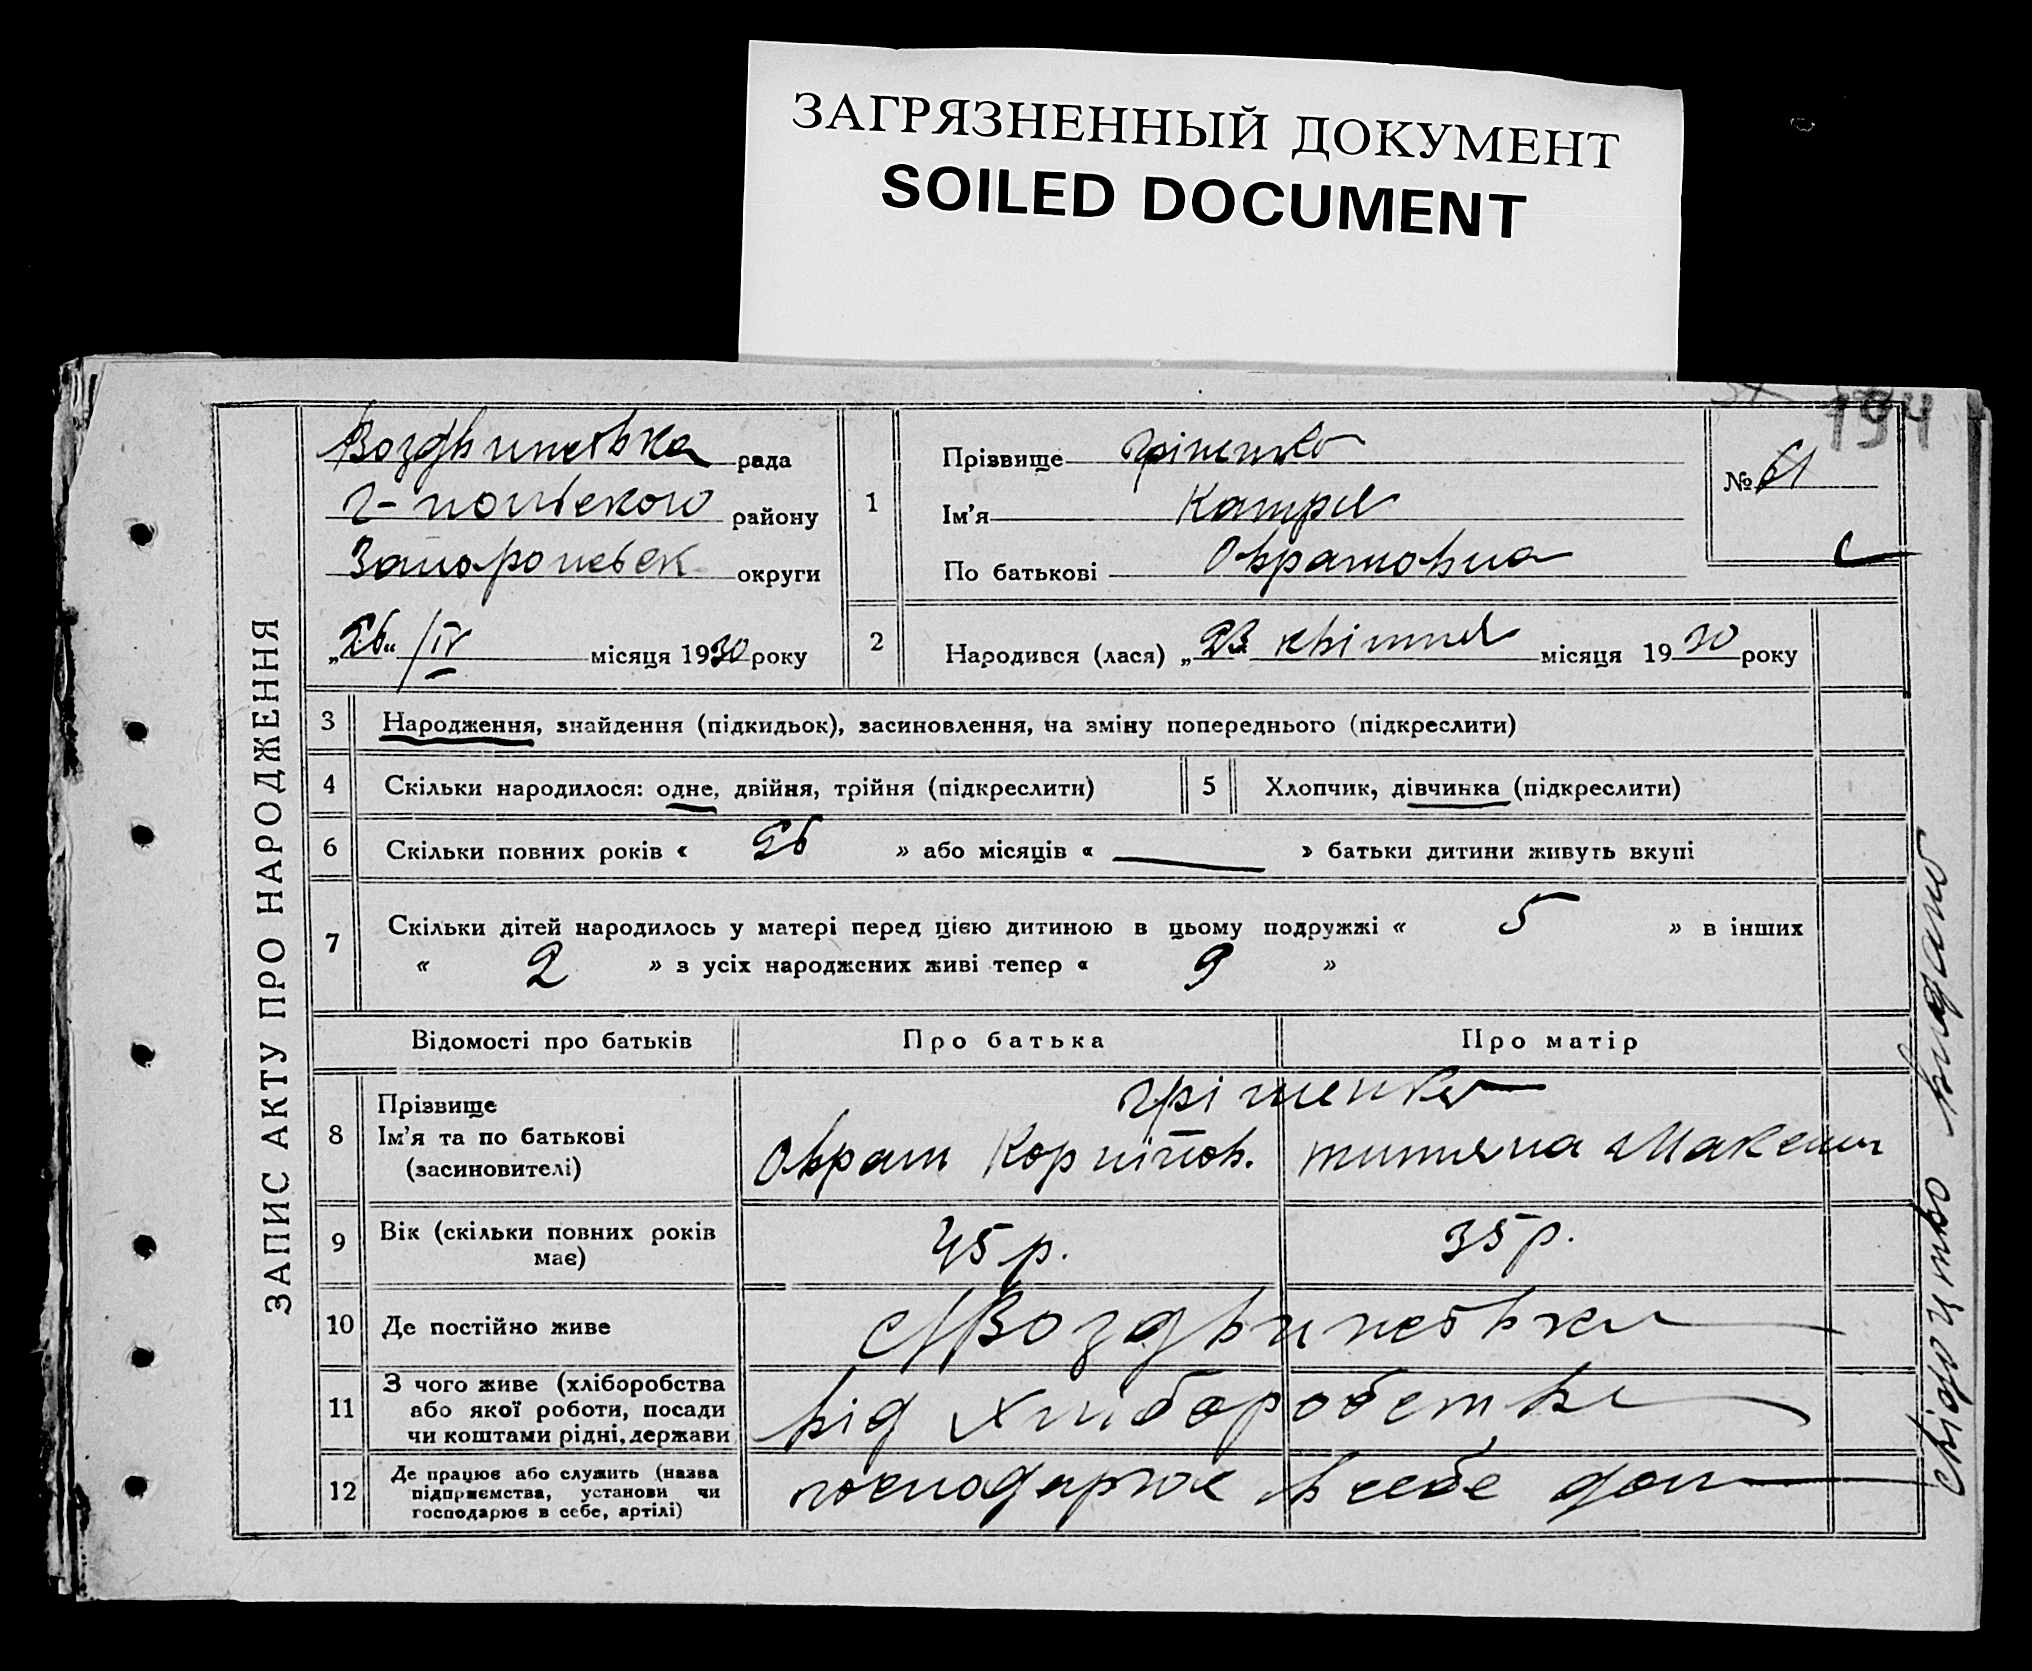 ЗАГРЯЗНЕННЫЙ ДОКУМЕНТ
SOILED DOCUMENT
194
ЗАПИС АКТУ ПРО НАРОДЖЕННЯ
Воздвиневка рада
району
Запорожськ округи
„26“ /IV місяця 1930 року
1
Прізвище Гріненко
Ім'я
По батькові Овратовна
№ 61
2
Народився (лася) „23 квітня місяця 1930 року
3 Народження, знайдення (підкидьок), засиновлення, на зміну попереднього (підкреслити)
4 Скільки народилося: одне, двійня, трійня (підкреслити)
5 Хлопчик, дівчинка (підкреслити)
6 Скільки повних років « » або місяців « — » батьки дитини живуть вкупі
7 Скільки дітей народилось у матері перед цією дитиною в цьому подружжі « 5 » в інших
« 2 » з усіх народжених живі тепер « »
Відомості про батьків Про батька Про матір
8 Прізвище
Ім'я та по батькові
(засиновителі)
Гріненко
Оврам
9 Вік (скільки повних років
має)
45 р. 35 р.
10 Де постійно живе
11 З чого живе (хліборобства
або якої роботи, посади
чи коштами рідні, держави
від хліборобства
12 Де працює або служить (назва
підприємства, установи чи
господарює в себе, артілі)
господарює в себе дома
свідоцтво видано